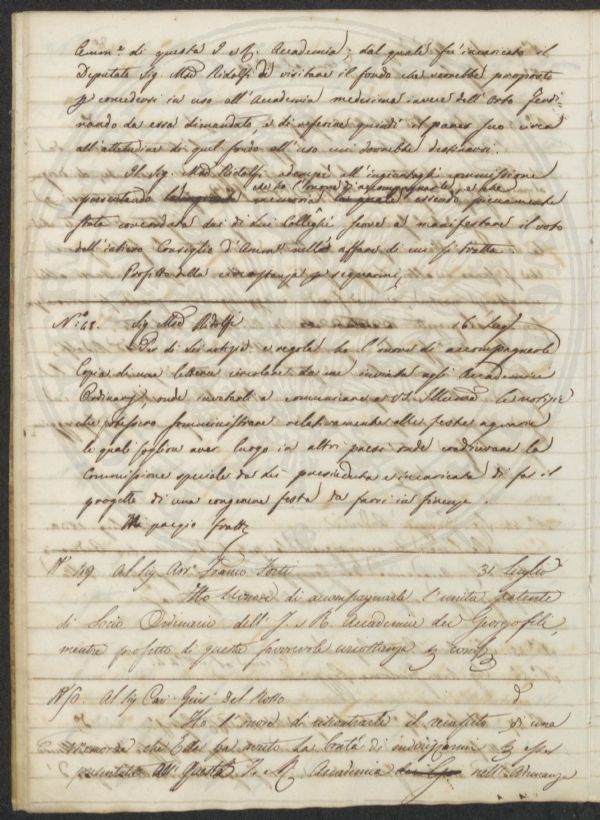 Amm.e di questa I. e R. Accademia, dal quale fu incaricato il
Deputato Sig. March. Ridolfi di visitare il fondo che verrebbe proposto
p concedersi in uso all'Accademia medesima invece dell'Orto
da essa dimandato, e di referire quindi il parer suo circa
all'attitudine di quel fondo all'uso cui dovrebbe destinarsi.
Il Sig. March. Ridolfi adempiè all'ingiuntagli commissione
che ho l'onore di accompagnarle, e che
presentando memoria la quale essendo pienamente
stata concordata dai di Lui Colleghi serve a manifestare il voto
dell'intiero Consiglio d'Amm.e nell' affare di cui si tratta.
Profitto della circostanza p segnarmi
N.o 48. Sig. March. Ridolfi 16. Lug.
Per di Lei notizia e regola ho l'onore di accompagnarle
Copia di una lettera circolare da me inviata agli Accademici
Ordinarj, onde invitarli a comunicare a VS. Illustriss. le notizie
che potessero somministrare relativamente alle feste agrarie
le quali soglion aver luogo in altri paesi onde coadiuvare la
Commissione speciale da Lei presieduta e incaricata di far il
progetto di una congenere festa da farsi in Firenze.
Mi pregio fratt.
N.o 49. Al Sig. Avv. Franco Forti 31 Luglio
Ho l'onore di accompagnarle l'unita patente
di Socio Ordinario dell'I. e R. Accademia dei Georgofili,
mentre profitto di questa favorevole circostanza p
N.o 50. Al Sig. Cav. Gius. del Rosso d
Ho l'onore di riscontrarle il recapito di una
Memoria che Ella ha avuto la bontà di indirizzarmi p esser
presentata all' questa I. e R. Accademia nell'Adunanza